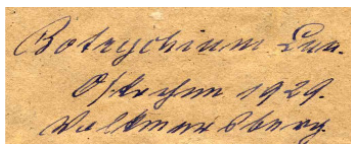 Botrychium Lun.
Ostrhm 1929.
Volkmarsberg.